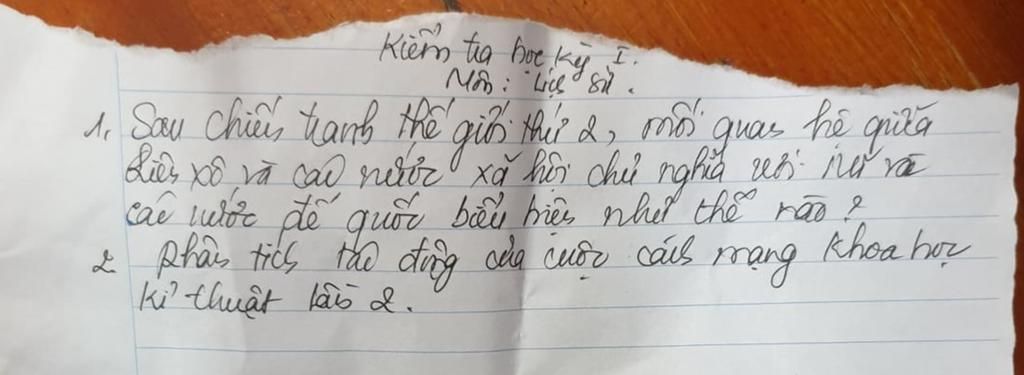 Kiểm tra học kỳ I.
Môn: Lịch sử.
1, Sau chiến tranh thế giới thứ 2, mối quan hệ giữa
Liên xô và các nước xã hội chủ nghĩa với Mĩ và
các nước đế quốc biểu hiện như thế nào?
2 Phân tích tác động của cuộc cách mạng khoa học
kĩ thuật lần 2.